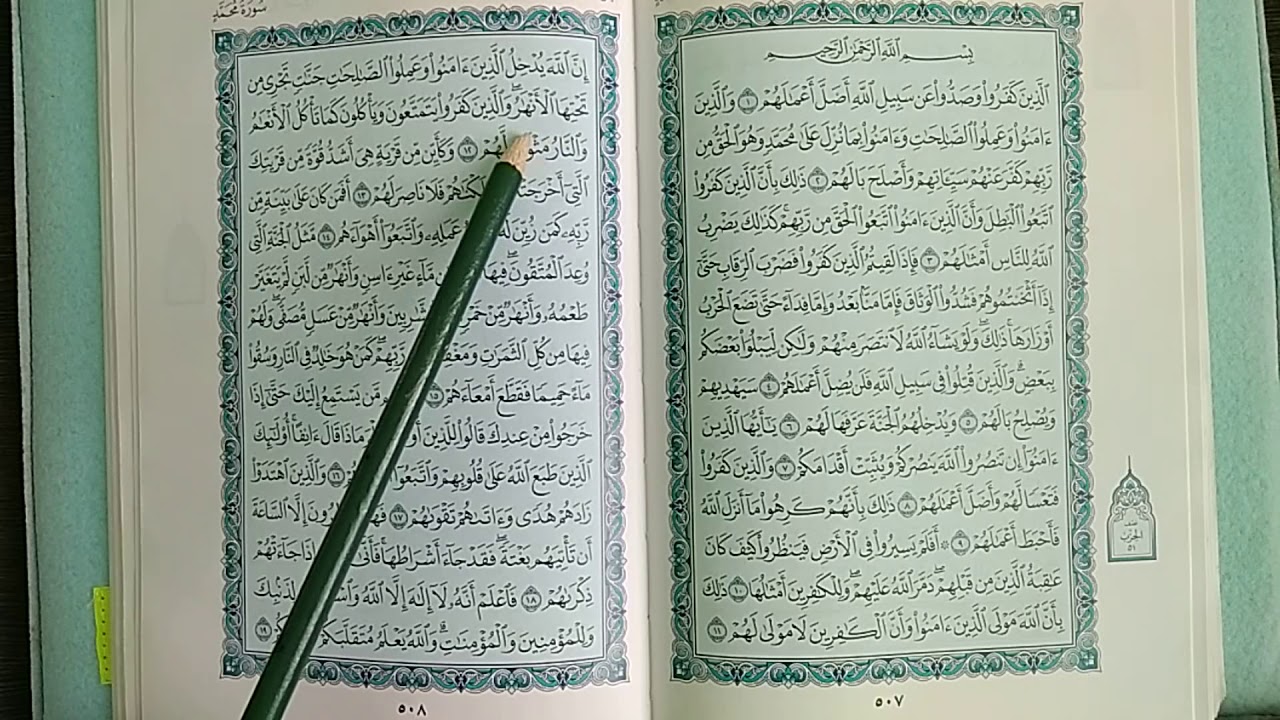 بِسْمِ ٱللَّهِ ٱلرَّحْمَٰنِ ٱلرَّحِيمِ
ٱلَّذِينَ كَفَرُوا۟ وَصَدُّوا۟ عَن سَبِيلِ ٱللَّهِ أَضَلَّ أَعْمَٰلَهُمْ ١ وَٱلَّذِينَ
ءَامَنُوا۟ وَعَمِلُوا۟ ٱلصَّٰلِحَٰتِ وَءَامَنُوا۟ بِمَا نُزِّلَ عَلَىٰ مُحَمَّدٍ وَهُوَ ٱلْحَقُّ مِن
رَّبِّهِمْ كَفَّرَ عَنْهُمْ سَيِّـَٔاتِهِمْ وَأَصْلَحَ بَالَهُمْ ٢ ذَٰلِكَ بِأَنَّ ٱلَّذِينَ كَفَرُوا۟
ٱتَّبَعُوا۟ ٱلْبَٰطِلَ وَأَنَّ ٱلَّذِينَ ءَامَنُوا۟ ٱتَّبَعُوا۟ ٱلْحَقَّ مِن رَّبِّهِمْ كَذَٰلِكَ يَضْرِبُ
ٱللَّهُ لِلنَّاسِ أَمْثَٰلَهُمْ ٣ فَإِذَا لَقِيتُمُ ٱلَّذِينَ كَفَرُوا۟ فَضَرْبَ ٱلرِّقَابِ حَتَّىٰٓ
إِذَآ أَثْخَنتُمُوهُمْ فَشُدُّوا۟ ٱلْوَثَاقَ فَإِمَّا مَنًّۢا بَعْدُ وَإِمَّا فِدَآءً حَتَّىٰ تَضَعَ ٱلْحَرْبُ
أَوْزَارَهَا ۚ ذَٰلِكَ ۖ وَلَوْ يَشَآءُ ٱللَّهُ لَٱنتَصَرَ مِنْهُمْ وَلَٰكِن لِّيَبْلُوَا۟ بَعْضَكُم
بِبَعْضٍ ۗ وَٱلَّذِينَ قُتِلُوا۟ فِى سَبِيلِ ٱللَّهِ فَلَن يُضِلَّ أَعْمَٰلَهُمْ ٤ سَيَهْدِيهِمْ
وَيُصْلِحُ بَالَهُمْ ٥ وَيُدْخِلُهُمُ ٱلْجَنَّةَ عَرَّفَهَا لَهُمْ ٦ يَٰٓأَيُّهَا ٱلَّذِينَ
ءَامَنُوٓا۟ إِن تَنصُرُوا۟ ٱللَّهَ يَنصُرْكُمْ وَيُثَبِّتْ أَقْدَامَكُمْ ٧ وَٱلَّذِينَ كَفَرُوا۟
فَتَعْسًا لَّهُمْ وَأَضَلَّ أَعْمَٰلَهُمْ ٨ ذَٰلِكَ بِأَنَّهُمْ كَرِهُوا۟ مَآ أَنزَلَ ٱللَّهُ
فَأَحْبَطَ أَعْمَٰلَهُمْ ٩ ۞ أَفَلَمْ يَسِيرُوا۟ فِى ٱلْأَرْضِ فَيَنظُرُوا۟ كَيْفَ كَانَ
عَٰقِبَةُ ٱلَّذِينَ مِن قَبْلِهِمْ ۚ دَمَّرَ ٱللَّهُ عَلَيْهِمْ ۖ وَلِلْكَٰفِرِينَ أَمْثَٰلُهَا ١٠ ذَٰلِكَ
بِأَنَّ ٱللَّهَ مَوْلَى ٱلَّذِينَ ءَامَنُوا۟ وَأَنَّ ٱلْكَٰفِرِينَ لَا مَوْلَىٰ لَهُمْ ١١
نصف
الحزب
٥١
٥٠٧
سُورَةُ مُحَمَّدٍ
إِنَّ ٱللَّهَ يُدْخِلُ ٱلَّذِينَ ءَامَنُوا۟ وَعَمِلُوا۟ ٱلصَّٰلِحَٰتِ جَنَّٰتٍ تَجْرِى مِن
تَحْتِهَا ٱلْأَنْهَٰرُ ۖ وَٱلَّذِينَ كَفَرُوا۟ يَتَمَتَّعُونَ وَيَأْكُلُونَ كَمَا تَأْكُلُ ٱلْأَنْعَٰمُ
وَٱلنَّارُ لَّهُمْ ١٢ وَكَأَيِّن مِّن قَرْيَةٍ هِىَ أَشَدُّ قُوَّةً مِّن قَرْيَتِكَ
ٱلَّتِىٓ فَلَا نَاصِرَ لَهُمْ ١٣ أَفَمَن كَانَ عَلَىٰ بَيِّنَةٍ مِّن
رَّبِّهِۦ كَمَن زُيِّنَ عَمَلِهِۦ وَٱتَّبَعُوٓا۟ أَهْوَآءَهُم ١٤ مَّثَلُ ٱلْجَنَّةِ ٱلَّتِى
وُعِدَ ٱلْمُتَّقُونَ ۖ فِيهَآ مَّآءٍ غَيْرِ ءَاسِنٍ وَأَنْهَٰرٌ مِّن لَّبَنٍ لَّمْ يَتَغَيَّرْ
طَعْمُهُۥ وَأَنْهَٰرٌ مِّنْ خَمْرٍ وَأَنْهَٰرٌ مِّنْ عَسَلٍ مُّصَفًّى ۖ وَلَهُمْ
فِيهَا مِن كُلِّ ٱلثَّمَرَٰتِ رَّبِّهِمْ ۖ كَمَنْ هُوَ خَٰلِدٌ فِى ٱلنَّارِ وَسُقُوا۟
مَآءً حَمِيمًا فَقَطَّعَ أَمْعَآءَهُمْ ١٥ مَّن يَسْتَمِعُ إِلَيْكَ حَتَّىٰٓ إِذَا
خَرَجُوا۟ مِنْ عِندِكَ قَالُوا۟ لِلَّذِينَ مَاذَا قَالَ ءَانِفًا ۚ أُو۟لَٰٓئِكَ
ٱلَّذِينَ طَبَعَ ٱللَّهُ عَلَىٰ قُلُوبِهِمْ وَٱتَّبَعُوٓا۟ ١٦ وَٱلَّذِينَ ٱهْتَدَوْا۟
زَادَهُمْ هُدًى وَءَاتَىٰهُمْ تَقْوَىٰهُمْ ١٧ إِلَّا ٱلسَّاعَةَ
أَن تَأْتِيَهُم بَغْتَةً ۖ فَقَدْ جَآءَ أَشْرَاطُهَا ۚ فَأَنَّىٰ إِذَا جَآءَتْهُمْ
ذِكْرَىٰهُمْ ١٨ فَٱعْلَمْ أَنَّهُۥ لَآ إِلَٰهَ إِلَّا ٱللَّهُ لِذَنۢبِكَ
وَلِلْمُؤْمِنِينَ وَٱلْمُؤْمِنَٰتِ ۗ وَٱللَّهُ يَعْلَمُ مُتَقَلَّبَكُمْ ١٩
٥٠٨